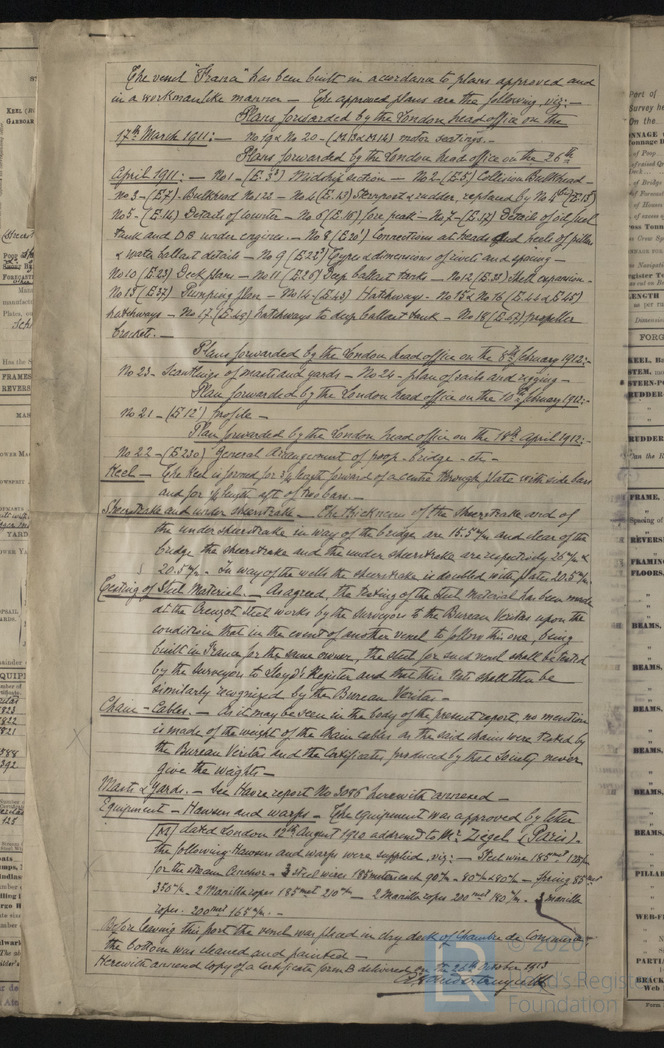 The vessel "France" has been built in accordance to plans approved and
in a workmanlike manner — The approved plans are the following, viz: —
Plans forwarded by the London head office on the
17th March 1911: — No 19 & No 20 — (M13 & M14) motor seatings. —
Plans forwarded by the London head office on the 26th
April 1911: — No 1 — Midship section — No 2 — (E.5) Collision Bulkhead —
No 3 — (E.7) Bulkhead No 122 — No 4 (E.13) Sternpost & rudder, replaced by No 4
No 5 — (E.14) Details of counter — No 6 (E.16) fore peak — No 7 — (E.17) Details of oil fuel
tank and DB under engines. — No 8 (E20) Connections at heads and heels of pillars
& water ballast details — No 9 (E22) Types & dimensions of rivets and spacing —
No 10 (E23) Deck plans — No 11 (E26) Deep ballast tanks — No 12 (E.33) Shell expansion —
No 13 (E37) Pumping plan — No 14 — (E43) Hatchways — No 15 & No 16 (E.44 & E45)
hatchways — No 17 (E48) hatchways to deep ballast tank — No 18 (E67) propeller
brackets. —
Plans forwarded by the London head office on the 8th February 1912: —
No 23 — scantlings of masts and yards — No 24 — plan of sails and rigging —
Plan forwarded by the London head office on the 10th February 1912: —
No 21 — (E12) profile —
Plan forwarded by the London head office on the 18th April 1912: —
No 22 — (E230) General Arrangement of poop — bridge — etc —
Keel — The keel is formed for ¾ length forward of a centre through plate with side bars
and for ¼ length aft of two bars. —
Sheerstrake and under sheerstrake — The thickness of the sheerstrake and of
the under sheerstrake in way of the bridge are 15.5 m/m and clear of the
bridge the sheerstrake and the under sheerstrake are respectively 26 m/m &
20.5 m/m. In way of the wells the sheerstrake is doubled with plates 20.5 m/m.
Testing of Steel Material. — As agreed, the testing of the Steel Material has been made
at the Creuzot Steel works by the surveyors to the Bureau Veritas upon the
condition that in the event of another vessel to follow this one, being
built in France for the same owner, the steel for such vessel shall be tested
by the surveyors to Lloyd's Register and that their tests shall then be
similarly recognized by the Bureau Veritas —
Chain — Cables. — As it may be seen in the body of the present report no mention
is made of the weight of the chain cables as the said chains were tested by
the Bureau Veritas and the Certificates produced by that Society never
give the weights —
Masts & Yards. — See Havre report No 3086 herewith annexed —
Equipment — Hawsers and warps — The equipment was approved by letter
dated London 12th August 1912 addressed to Mr. Ziegel (Paris). —
the following Hawsers and warps were supplied, viz: — Steel wire 185 met 128 m/m
for the steam Anchor — 3 steel wires 185 meters each 90 m/m — 80 m/m & 80 m/m — Spring 85 met
350 m/m — 2 Manilla ropes 185 met 210 m/m — 2 Manilla ropes 200 met 180 m/m — 3 manilla
ropes 200 met 165 m/m. —
Before leaving this port the vessel was placed in dry dock of Chambre de Commerce
the bottom was cleaned and painted —
Herewith annexed copy of a certificate form B delivered on the 28th October 1913
© 2020
LR
Lloyd's Register
Foundation